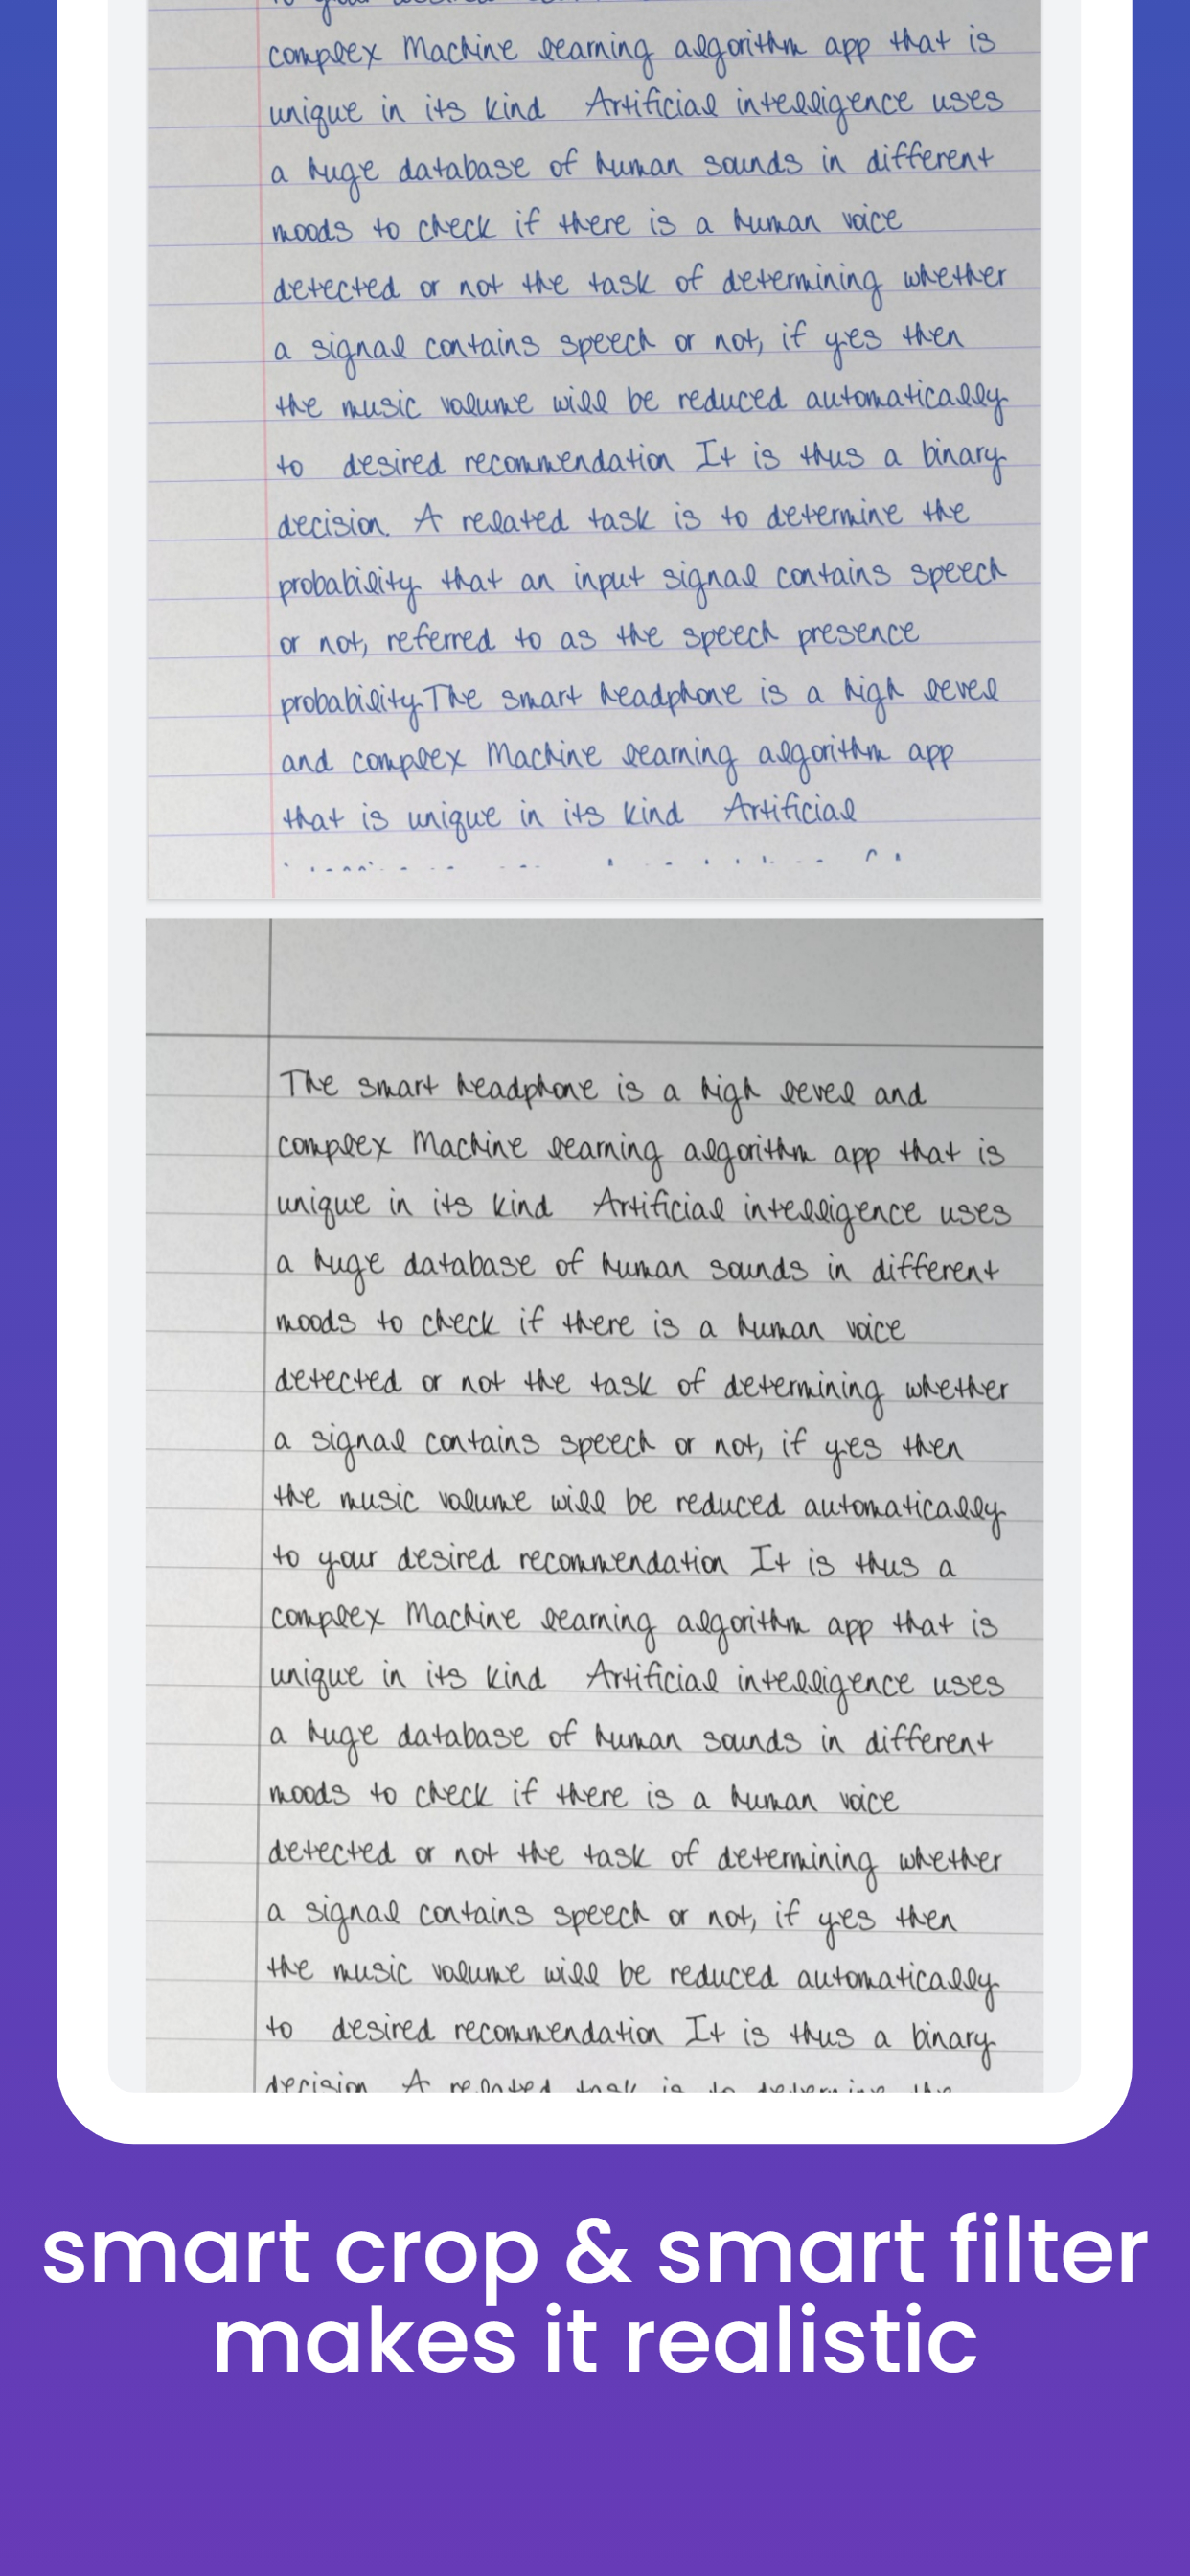 complex Machine learning algorithm app that is
unique in its kind Artificial intelligence uses
a huge database of human sounds in different
moods to check if there is a human voice
detected or not the task of determining whether
a signal contains speech or not, if yes then
the music volume will be reduced automatically
to desired recommendation It is thus a binary
decision. A related task is to determine the
probability that an input signal contains speech
or not, referred to as the speech presence
probability.The smart headphone is a high level
and complex Machine learning algorithm app
that is unique in its kind Artificial
The smart headphone is a high level and
complex Machine learning algorithm app that is
unique in its kind Artificial intelligence uses
a huge database of human sounds in different
moods to check if there is a human voice
detected or not the task of determining whether
a signal contains speech or not, if yes then
the music volume will be reduced automatically
to your desired recommendation It is thus a
complex Machine learning algorithm app that is
unique in its kind Artificial intelligence uses
a huge database of human sounds in different
moods to check if there is a human voice
detected or not the task of determining whether
a signal contains speech or not, if yes then
the music volume will be reduced automatically
to desired recommendation It is thus a binary
decision. A related task is to determine the
smart crop & smart filter
makes it realistic